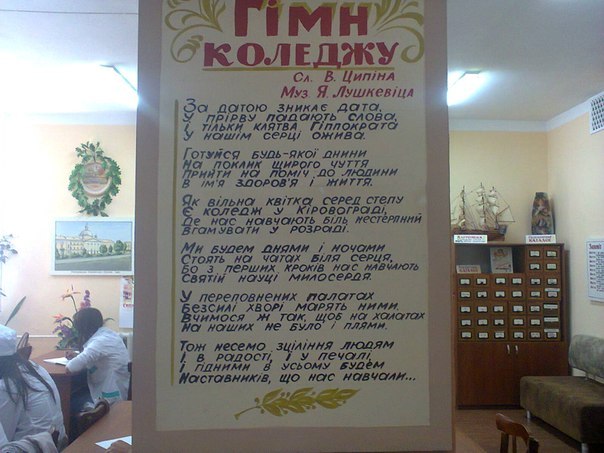 ГІМН
КОЛЕДЖУ
Сл. В. Ципіна
Муз. Я. Лушкевіца
За датою зникає дата,
У прірву падають слова,
І тільки клятва Гіппократа
У нашім серці ожива.
Готуйся будь-якої днини
На поклик щирого чуття
Прийти на поміч до людини
В ім'я здоров'я і життя.
Як вільна квітка серед степу
Є коледж у Кіровограді,
Де нас навчають біль нестерпний
Вгамувати у розраді.
Ми будем днями і ночами
Стоять на чатах біля серця,
Бо з перших кроків нас навчають
Святій науці милосердя.
У переповнених палатах
Безсилі хворі марять ними.
Вчимося ж так, щоб на халатах
На наших не було і плями.
Тож несемо зцілення людям
І в радості, і у печалі,
І гідними в усьому будем
Наставників, що нас навчали...